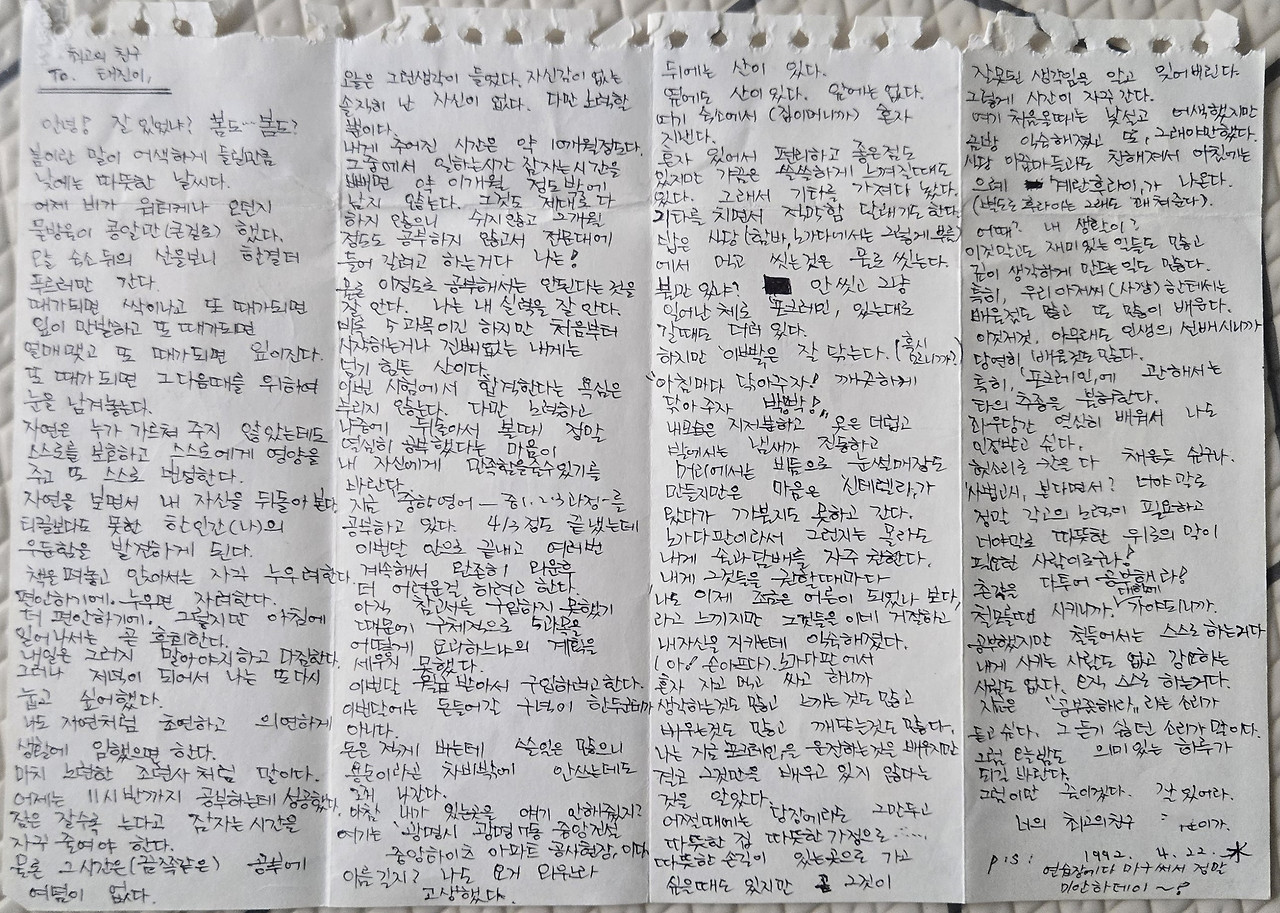 최고의 친구
To. 태진이,
안녕! 잘 있었나? 봄도…봄도?
봄이란 말이 어색하게 들릴만큼
낮에는 따뜻한 날씨다.
어제 비가 워터케나 오던지
문방울이 콩알만(큰걸로) 했다.
오늘 숙소뒤의 산을보니 한결더
푸르러만 간다.
때가되면 싹이나고 또 때가되면
잎이 만발하고 또 때가되면
열매맺고 또 때가되면 잎이진다.
또 때가되면 그다음때를 위하여
눈을 남겨놓는다.
자연은 누가 가르쳐 주지 않았는데도
스스로를 보호하고 스스로에게 영양을
주고 또 스스로 번성한다.
자연을 보면서 내 자신을 뒤돌아 본다.
티끌보다도 못한 한인간(나)의
우둔함을 발견하게 된다.
책을 펴놓고 앉아서는 자꾸 누우려한다.
편안하기에. 누우면 자려한다.
더 편안하기에. 그렇지만 아침에
일어나서는 곧 후회한다.
내일은 그러지 말아야지하고 다짐한다.
그러나 저녁이 되어서 나는 또다시
눕고 싶어했다.
나도 자연처럼 초연하고 의연하게
생활에 임했으면 한다.
마치 노련한 조련사처럼 말이다.
어제는 11시반까지 공부하는데 성공했다.
잠은 잘수록 는다고 잠자는 시간을
자꾸 줄여야 한다.
물론 그시간은(금쪽같은) 공부에
여념이 없다.
오늘은 그런생각이 들었다. 자신감이 없는
솔직히 난 자신이 없다. 다만 노력할
뿐이다.
내게 주어진 시간은 약 10개월정도다.
그중에서 일하는시간 잠자는시간을
빼면 약 2개월 정도밖에
남지 않는다. 그것도 제대로 다
하지 않으니 쉬지않고 2개월
정도도 공부하지 않고서 전문대에
들어 갈려고 하는거다 나는!
물론 이정도로 공부해서는 안된다는 것을
잘 안다. 나는 내 실력을 잘 안다.
비록 5과목이긴 하지만 처음부터
시작하는거나 진배없는 내게는
넘기 힘든 산이다.
이번 시험에서 합격한다는 욕심은
부리지 않는다. 다만 노력하고
나중에 뒤돌아서 볼때 정말
열심히 공부했다는 마음이
내 자신에게 만족할을줄수있기를
바란다.
지금 "중학영어-중1.2.3과정"를
공부하고 있다. 4/3정도 끝냈는데
이번달 안으로 끝내고 여러번
계속해서 완존히 외운후
더 어려운걸 하려고 한다.
아직 참고서를 구입하지 못했기
때문에 구체적으로 5과목을
어떻게 요리하느냐의 계획을
세우지 못했다.
이번달 월급 받아서 구입하려고한다.
이번달에는 돈들어갈 구녁이 한두군데가
아니다.
돈은 적게 버는데 쓸일은 많으니
용돈이라곤 차비밖에 안쓰는데도
고치 나간다.
아참 내가 있는곳을 얘기 안해줬지?
여기는 '광명시 광명7동 중앙건설
중앙하이츠 아파트 공사현장,이다.
이름길지? 나도 오거 외우느라
고상했다.
뒤에는 산이 있다.
옆에도 산이 있다. 앞에는 없다.
여기 숙소에서 (집이머니까) 혼자
지낸다.
혼자 있어서 편리하고 좋은점도
있지만 가끔은 쓸쓸하게 느껴질때도
있다. 그래서 기타를 가져다 놨다.
기타를 치면서 적막함 달래기도 한다.
밥은 식당(함바,노가다에서는 그렇게 부름)
에서 먹고 씻는것은 물로 씻는다.
불만 있냐? 안 씻고 그냥
일어난 체로 포크레인, 있는대로
갈때도 더러 있다.
하지만 이빨은 잘 닦는다. (혹시
모니까)
"아침마다 닦아주자! 깨끗하게
닦아주자 빡빡!"
내모습은 지저분하고 옷은 더럽고
발에서는 냄새가 진동하고
머리에서는 비듬으로 눈썰매장도
만들지만은 마음은 '신데렐라,가
왔다가 까불지도 못하고 간다.
노가다판이라서 그런지는 몰라도
내게 술과담배를 자주 권한다.
내게 그것들을 권할때마다
나도 이제 조금은 어른이 되었나 보다,
라고 느끼지만 그것들은 이제 거절하고
내자신을 지키는데 익숙해졌다.
(아! 손아프다.) 노가다판에서
혼자 자고 먹고 싸고 하니까
생각하는것도 많고 느끼는 것도 많고
배우는것도 많고 깨닫는것도 많다.
나는 지금 '포크레인,을 운전하는것을 배우지만
결코 그것만을 배우고 있지 않다는
것을 알았다.
어쩔때에는 당장에라도 그만두고
따뜻한 집 따뜻한 가정으로……
따뜻한 손길이 있는곳으로 가고
싶을때도 있지만 곧 그것이
잘못된 생각임을 알고 잊어버린다.
그렇게 시간이 자꾸 간다.
여기 처음올때는 낯설고 어색했지만
금방 익숙해졌고 또, 그래야만했다.
식당 아줌마들과도 친해져서 아침에는
으레 '계란후라이,가 나온다.
(별도로 후라이는 그래도 꽤 쳐준다.)
어때? 내 생활이?
이것말고도 재미있는 일들도 많고
깊이 생각하게 만드는 일도 많다.
특히, 우리 아저씨(사장)한테서는
배울점도 많고 또 많이 배운다.
이것저것. 아무래도 인생의 선배시니까
당연히 배울것도 많다.
특히, '포크레인,에 관해서는
타의 추종을 불허한다.
좌우당간 열심히 배워서 나도
인정받고 싶다.
헛소리로 칸을 다 채운듯 싶구나.
'사법고시, 본다면서? 너야 말로
정말 각고의 노력이 필요하고
너야말로 따뜻한 위로의 말이
필요한 사람이로구나!
촌각을 다투어 공부해라!
칙,물론 시키니까 대학에 가야되니까.
공부했지만 철들어서는 스스로 하는거다
내게 시키는 사람도 없고 강요하는
사람도 없다. 오직 스스로 하는거다.
지금은 "공부좀해라,,라는 소리가
듣고 싶다. 그 듣기 싫던 소리가 말이다.
그럼 오늘밤도 의미있는 하루가
되길 바란다.
그럼 이만 줄이겠다. 잘 있어라.
너의 최고의친구
1992. 4. 22. 水
P.S: 연습장에다 마구써서 정말
미안하데이~!